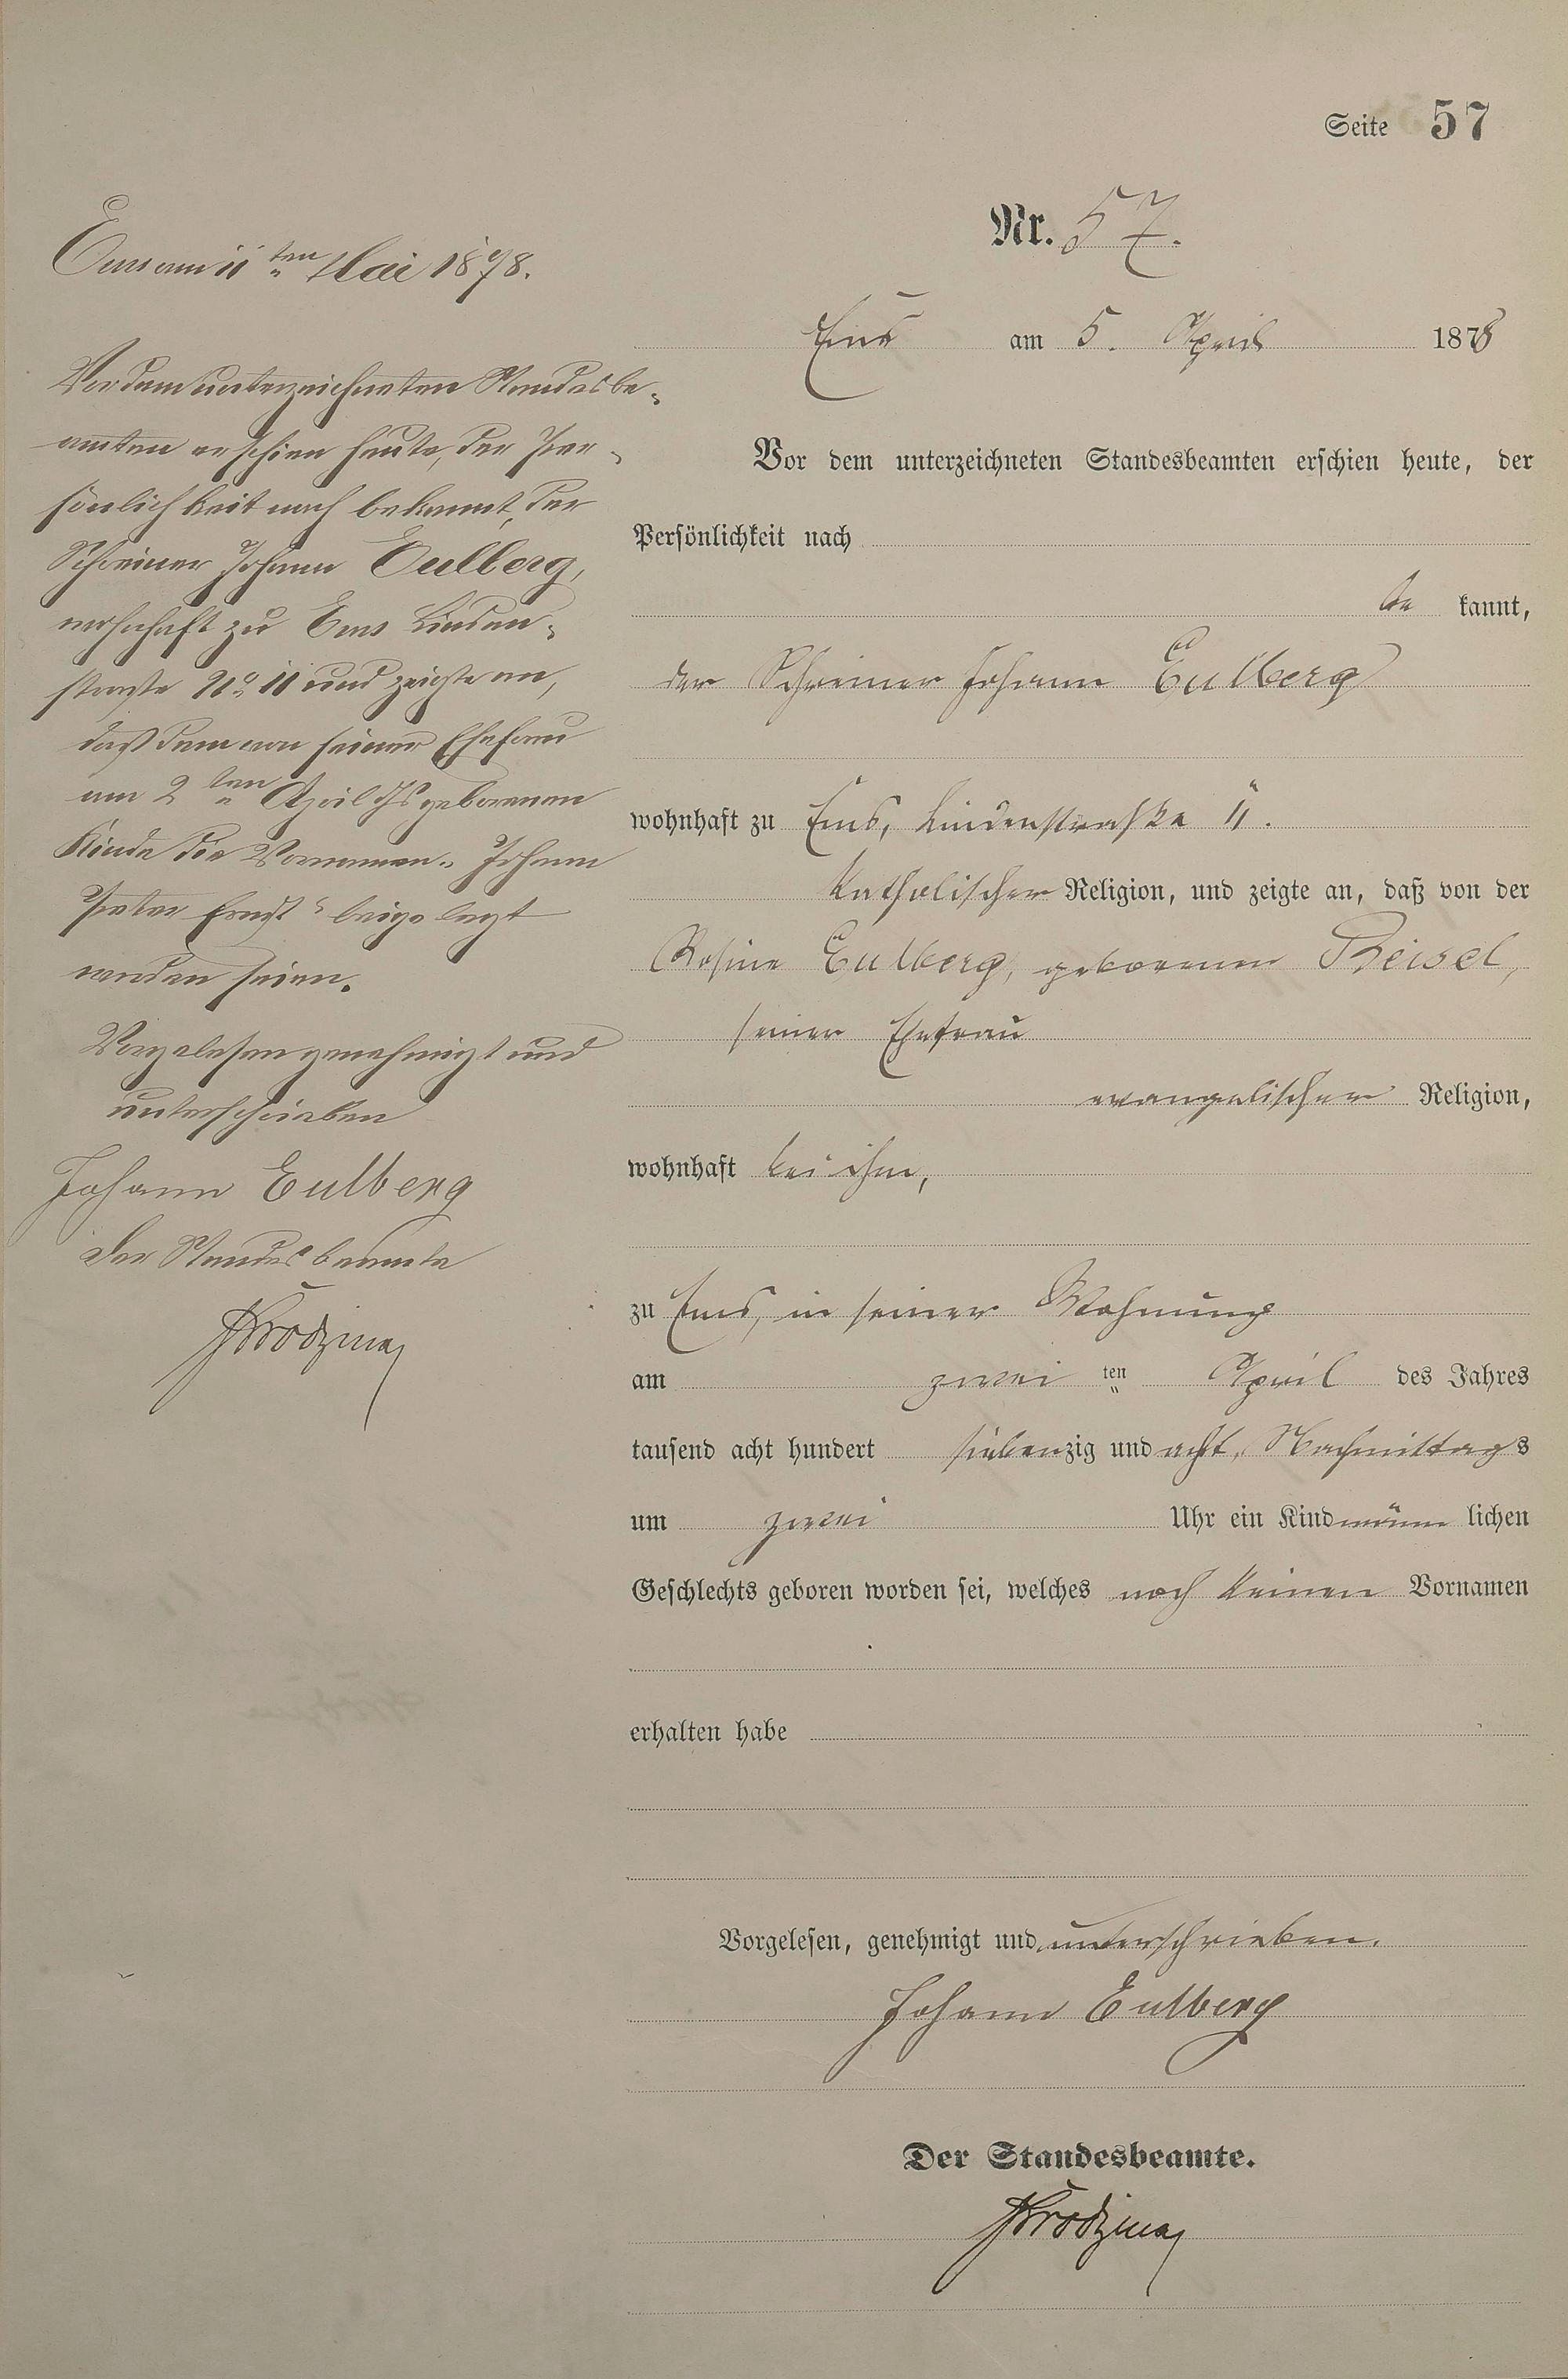 Seite 57
Nr. 57.
Ems am 5. April 1878
Vor dem unterzeichneten Standesbeamten erschien heute, der
Persönlichkeit nach
be kannt,
der Schreiner Johann Eulberg
wohnhaft zu Ems, Lindenstraße 11.
katholischer Religion, und zeigte an, daß von der
Rosine Eulberg, geborenen Reisel,
seiner Ehefrau
evangelischer Religion,
wohnhaft bei ihm,
zu Ems, in seiner Wohnung
am zwei ten April des Jahres
tausend acht hundert siebenzig und acht, Nachmittags
um zwei Uhr ein Kind männ lichen
Geschlechts geboren worden sei, welches noch keinen Vornamen
erhalten habe
Vorgelesen, genehmigt und unterschrieben.
Johann Eulberg
Der Standesbeamte.
Ems am 11ten Mai 1878.
Vor dem unterzeichneten Standesbe-
amten erschien heute, der Per-
sönlichkeit nach bekannt, der
Schreiner Johann Eulberg,
wohnhaft zu Ems Linden-
straße No 11 und zeigte an,
daß dem von seiner Ehefrau
am 2ten April ds geborenen
Kinde die Vornamen „Johann
Peter Ernst“ beigelegt
worden seien.
Vorgelesen genehmigt und
unterschrieben
Johann Eulberg
Der Standesbeamte